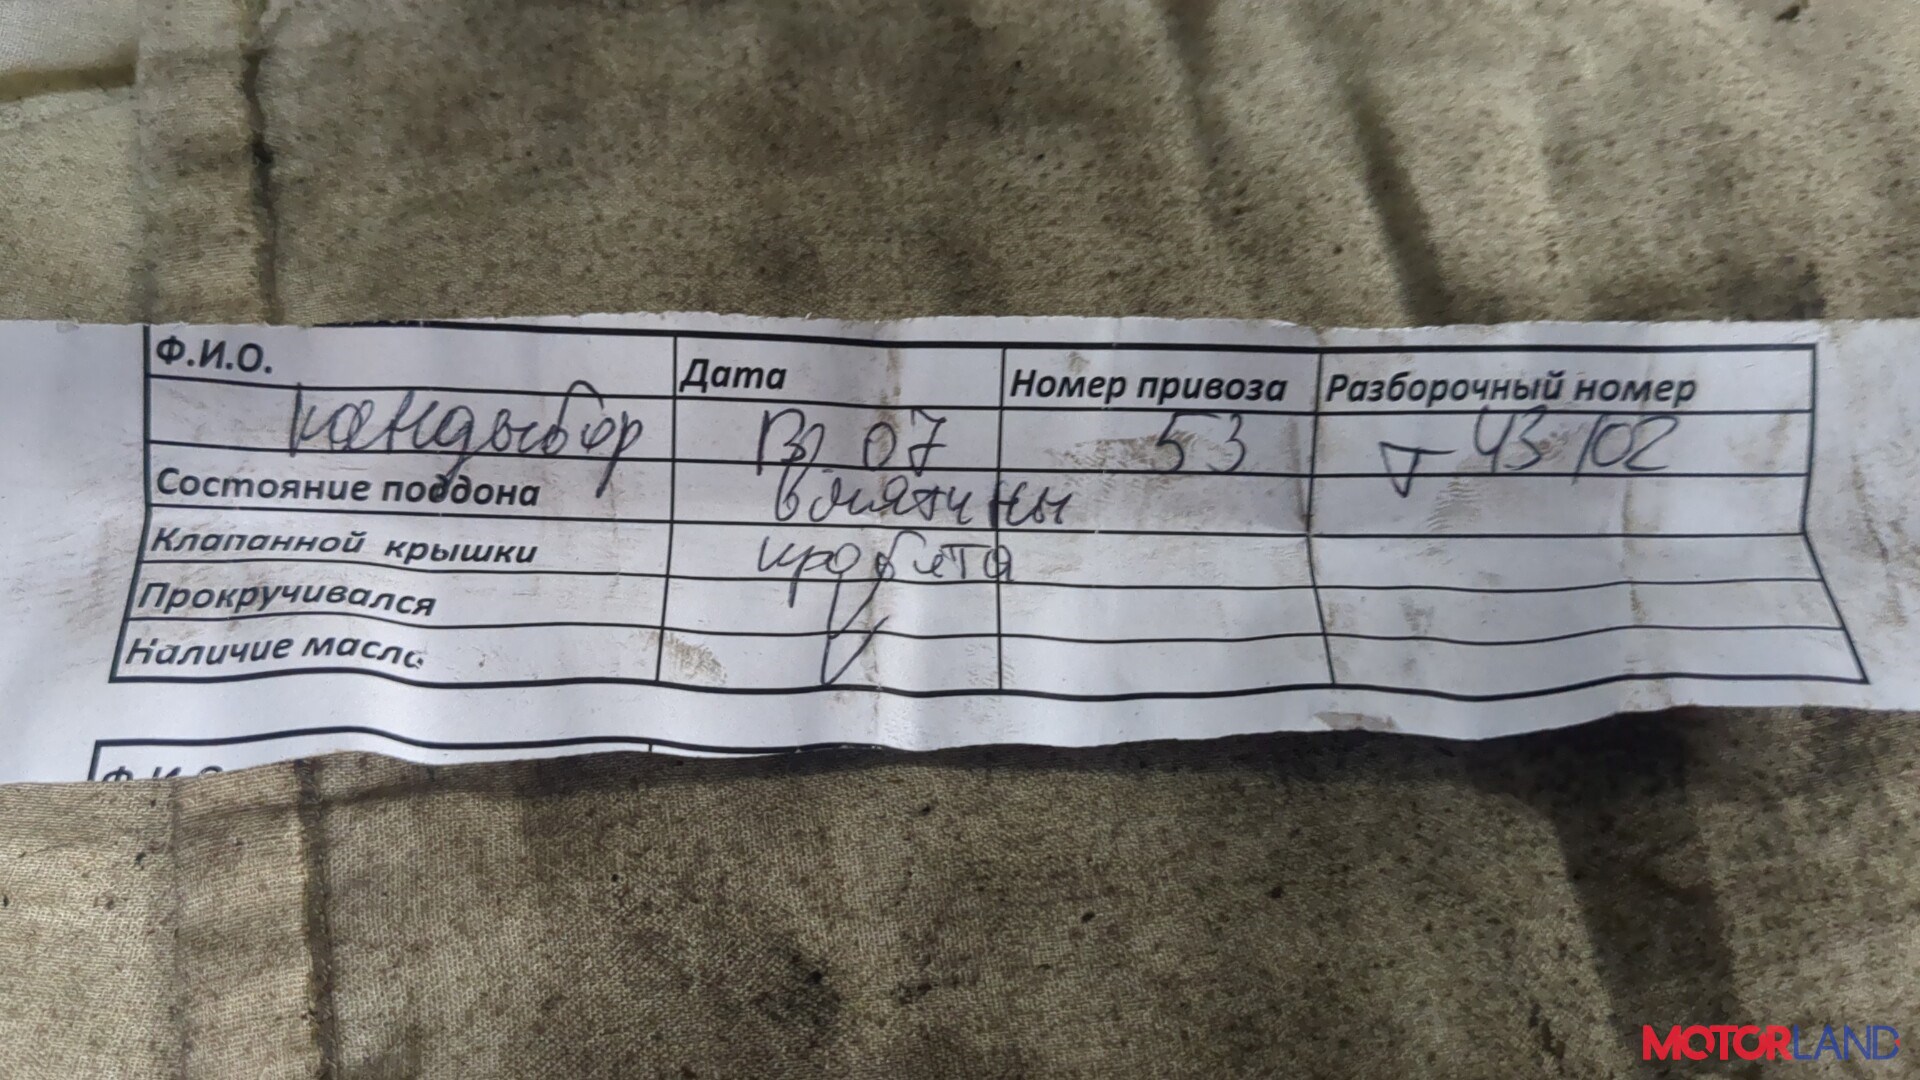 Ф.И.О. Дата Номер привоза Разборочный номер
кандыбор 07 53 T 43102
Состояние поддона вмятины
Клапанной крышки
Прокручивался
Наличие масла
Ф.И.О.
MOTORLAND